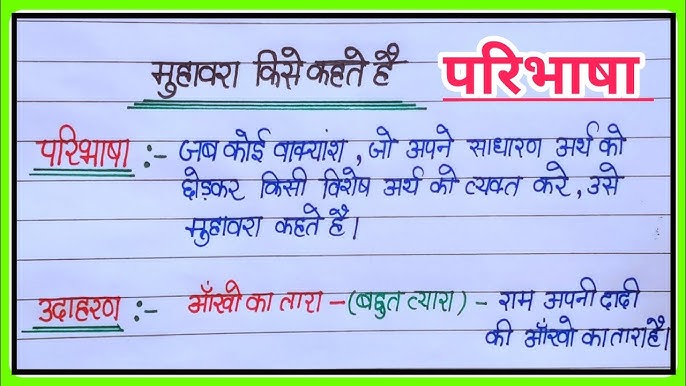 मुहावरा किसे कहते है परिभाषा
परिभाषा :- जब कोई वाक्यांश, जो अपने साधारण अर्थ को
छोड़कर किसी विशेष अर्थ को व्यक्त करे, उसे
मुहावरा कहते है।
उदाहरण :- आँखो का तारा - (बहुत प्यारा) - राम अपनी दादी
की आँखो का तारा है।